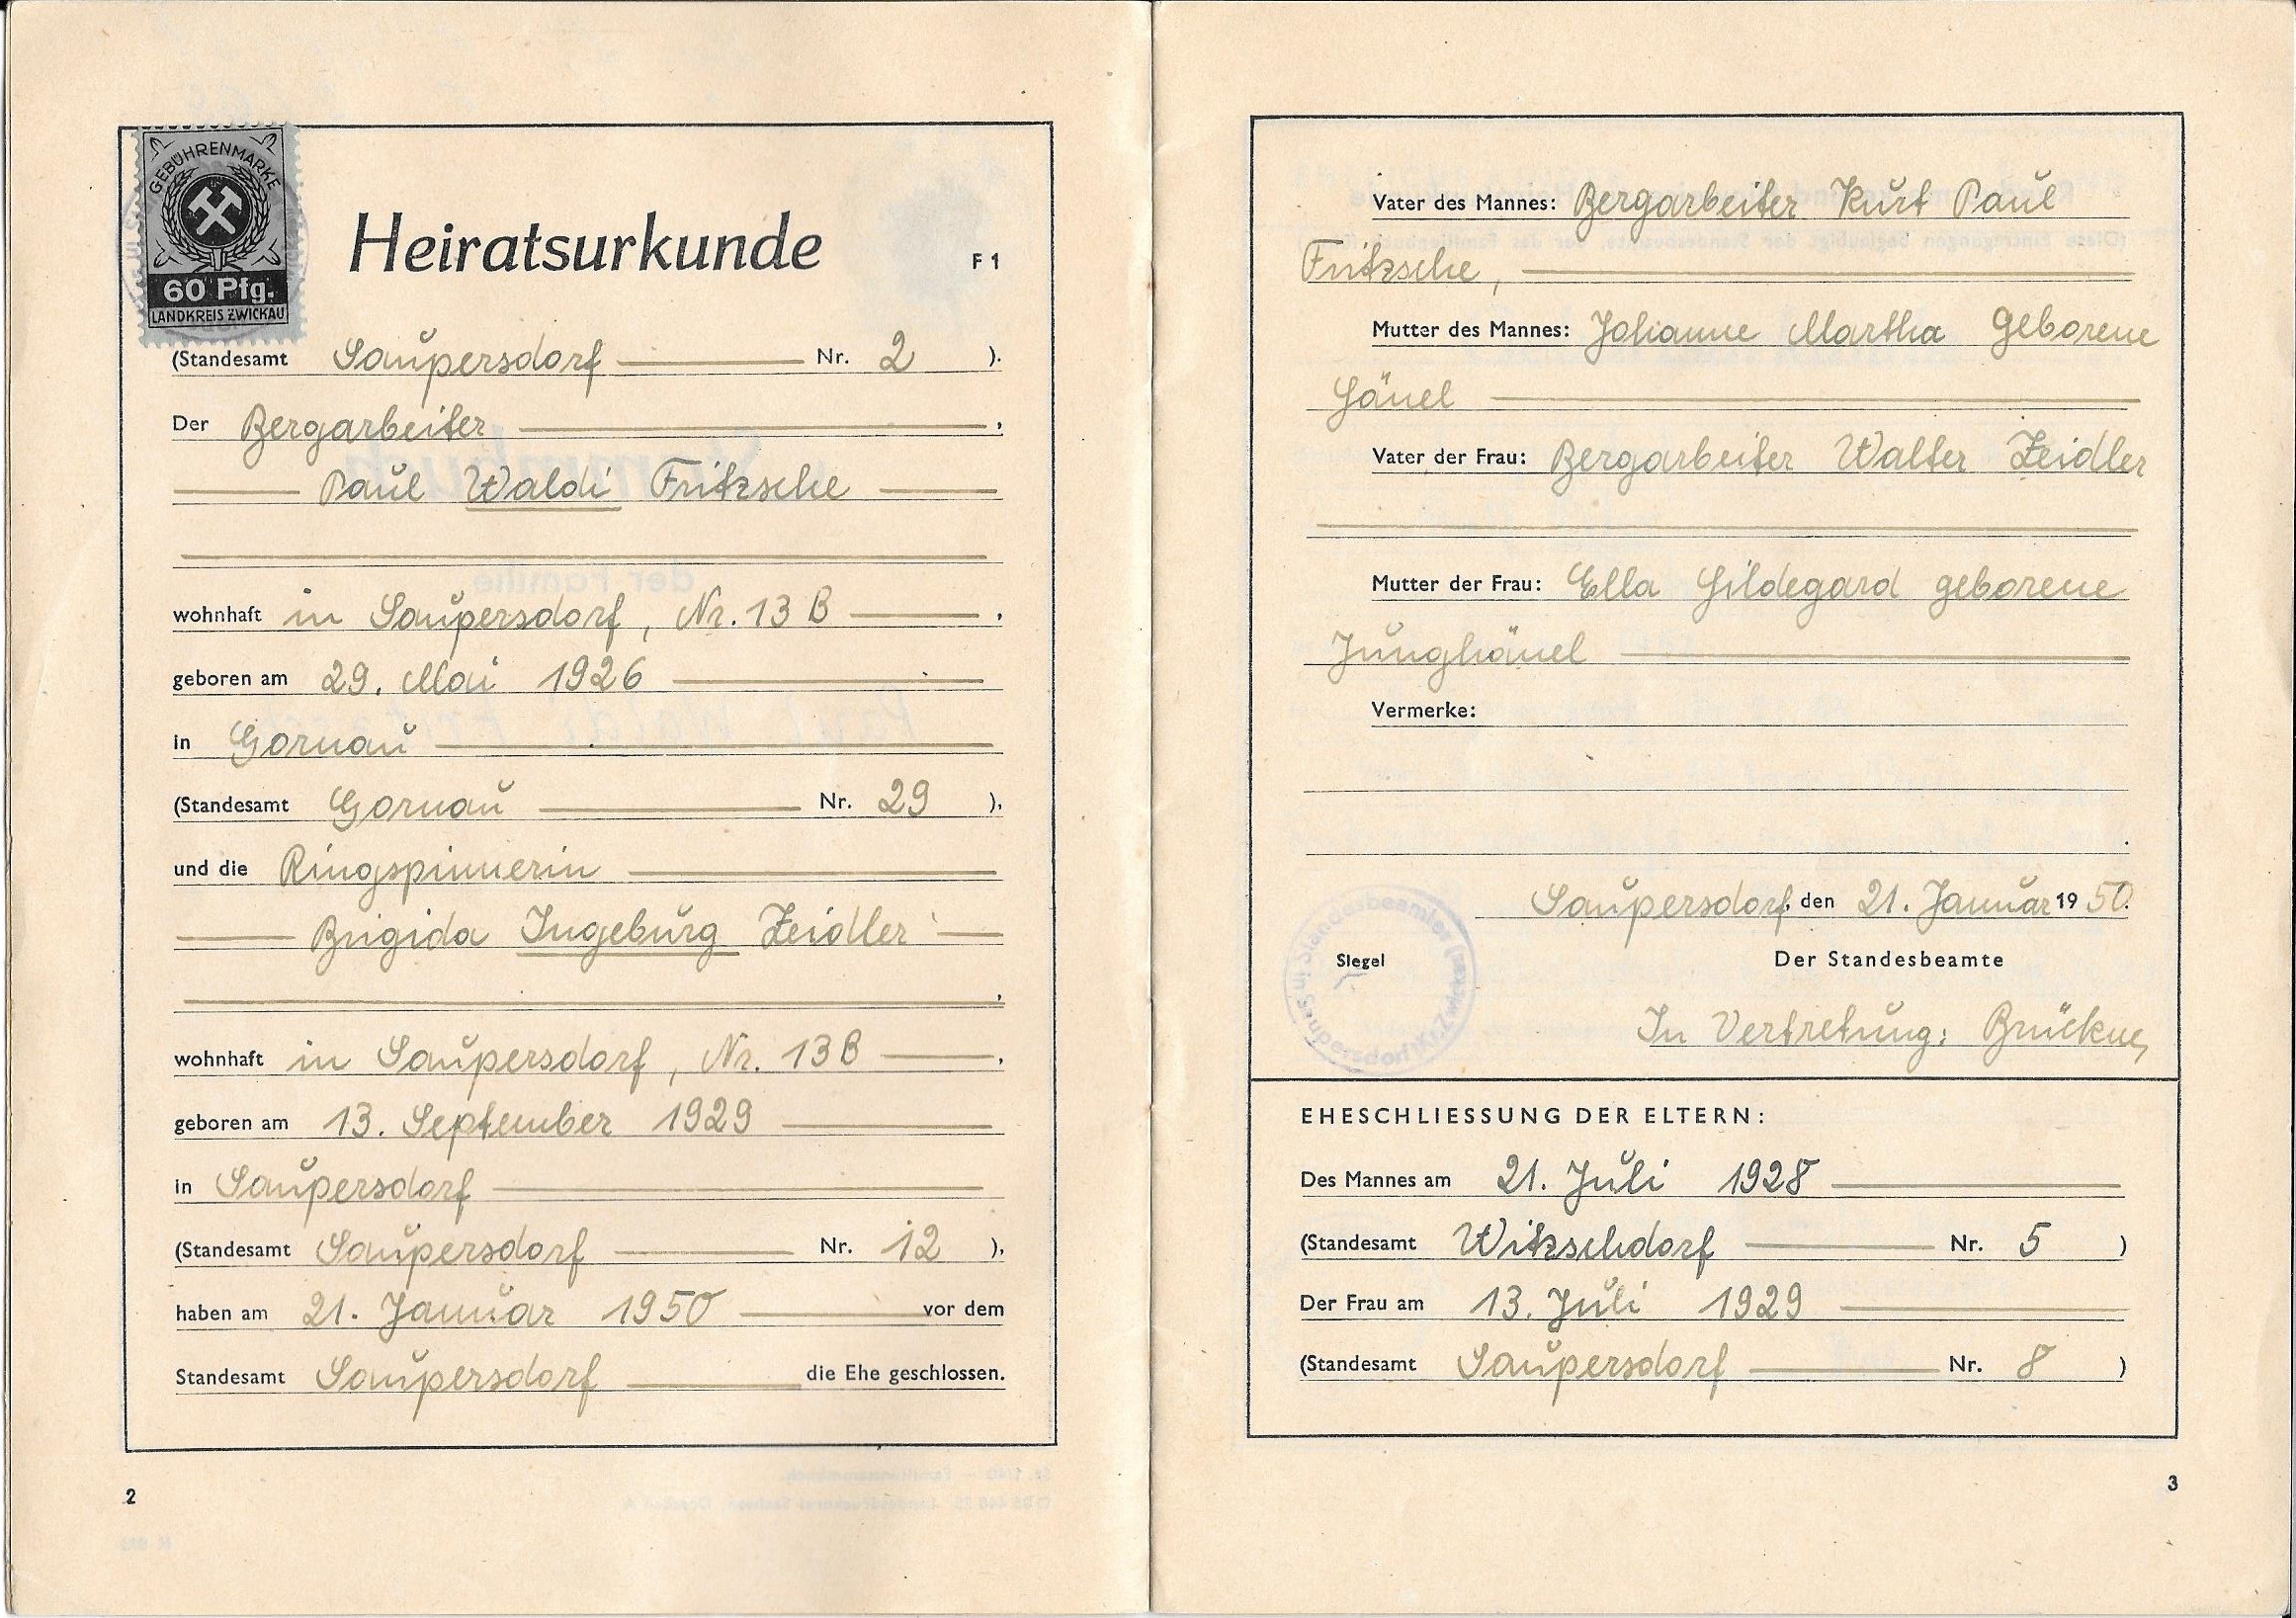 GEBÜHRENMARKE
60 Pfg.
LANDKREIS ZWICKAU
Heiratsurkunde
F 1
(Standesamt Saupersdorf Nr. 2 ).
Der Bergarbeiter ,
Paul Waldi Fritzsche
wohnhaft in Saupersdorf, Nr. 13 B ,
geboren am 29. Mai 1926
in Gornau
(Standesamt Gornau Nr. 29 ),
und die Ringspinnerin
Brigida Ingeburg Zeidler
,
wohnhaft in Saupersdorf, Nr. 13 B ,
geboren am 13. September 1929
in Saupersdorf
(Standesamt Saupersdorf Nr. 12 ),
haben am 21. Januar 1950 vor dem
Standesamt Saupersdorf die Ehe geschlossen.
2
Vater des Mannes: Bergarbeiter Kurt Paul
Fritzsche,
Mutter des Mannes: Johanne Martha geborene
Hänel
Vater der Frau: Bergarbeiter Walter Zeidler
Mutter der Frau: Ella Hildegard geborene
Junghänel
Vermerke:
.
Saupersdorf, den 21. Januar 1950.
Siegel
Der Standesbeamte
Standesbeamter in Saupersdorf (Kr. Zwickau)
In Vertretung: Brückner
EHESCHLIESSUNG DER ELTERN:
Des Mannes am 21. Juli 1928
(Standesamt Witzschdorf Nr. 5 )
Der Frau am 13. Juli 1929
(Standesamt Saupersdorf Nr. 8 )
3